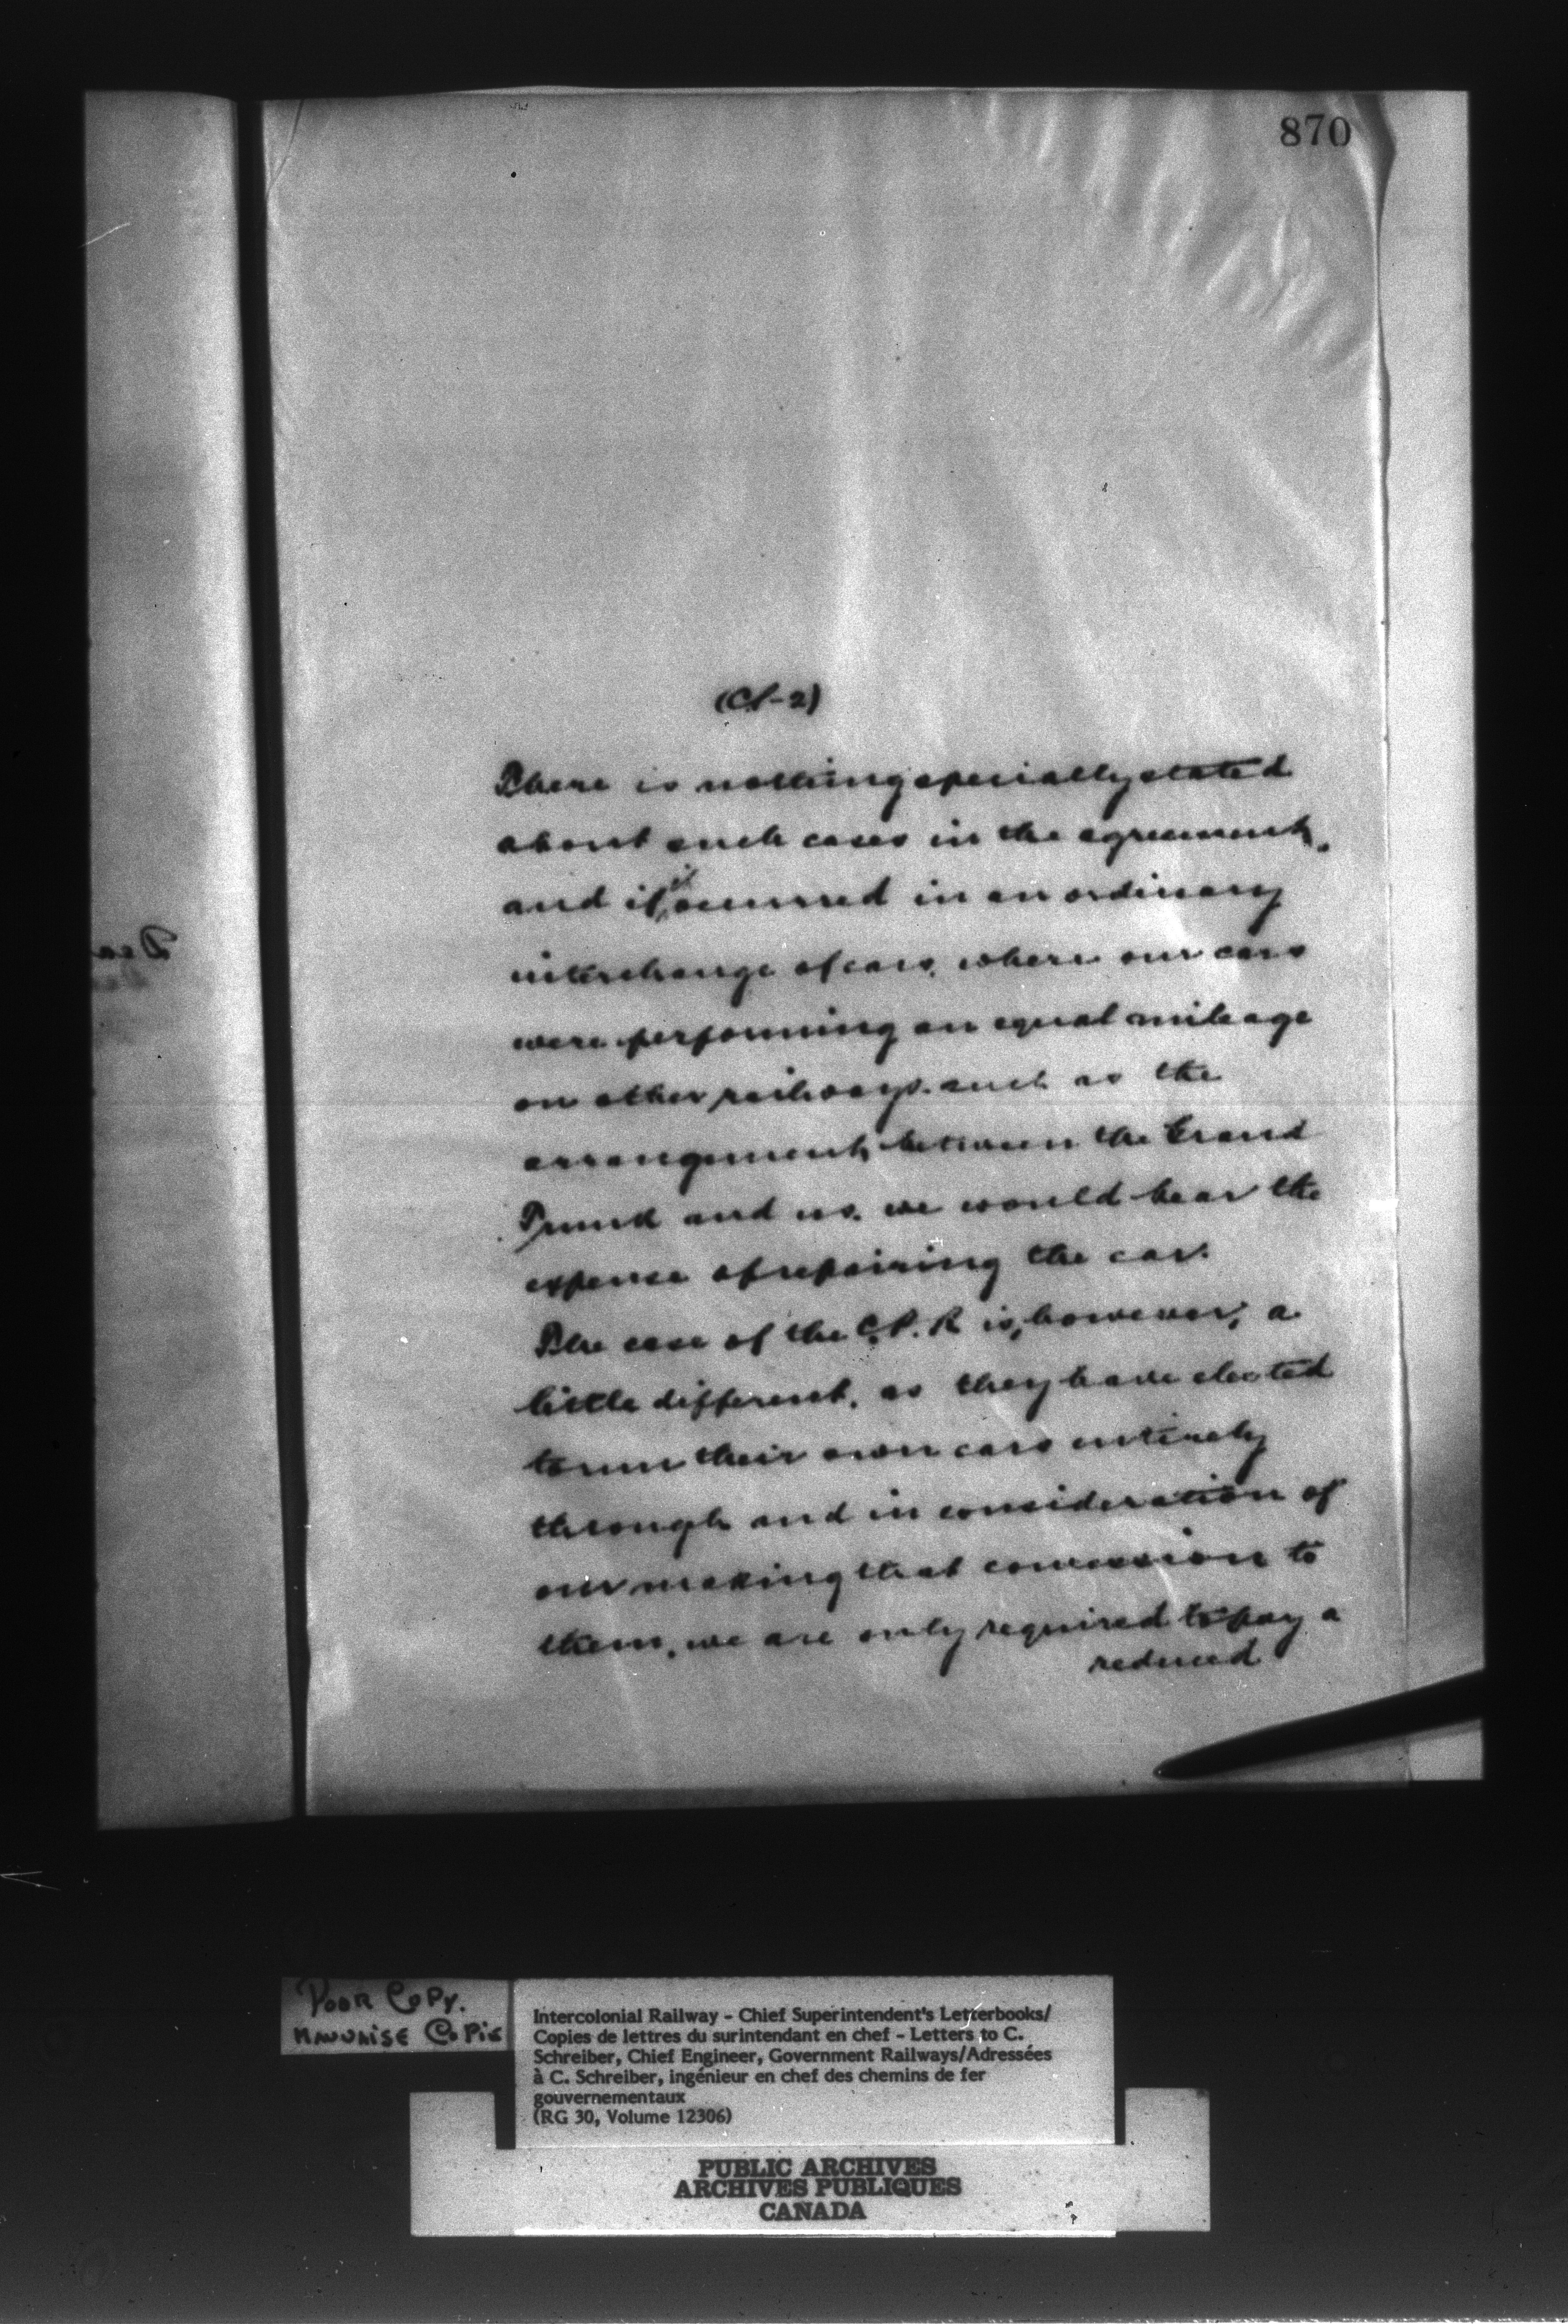 870
(Cl-2)
There is nothing specially stated
about such cases in the agreement,
and if it occurred in an ordinary
interchange of cars, where our cars
were performing an equal mileage
on other railways, such as the
arrangement between the Grand
Trunk and us, we would bear the
expense of repairing the car.
The case of the C.P.R is, however, a
little different, as they have elected
to run their own cars entirely
through and in consideration of
our making that concession to
them, we are only required to pay a
reduced
Poor Copy.
Mauvaise Copie
Intercolonial Railway - Chief Superintendent's Letterbooks/
Copies de lettres du surintendant en chef - Letters to C.
Schreiber, Chief Engineer, Government Railways/Adressées
à C. Schreiber, ingénieur en chef des chemins de fer
gouvernementaux
(RG 30, Volume 12306)
PUBLIC ARCHIVES
ARCHIVES PUBLIQUES
CANADA